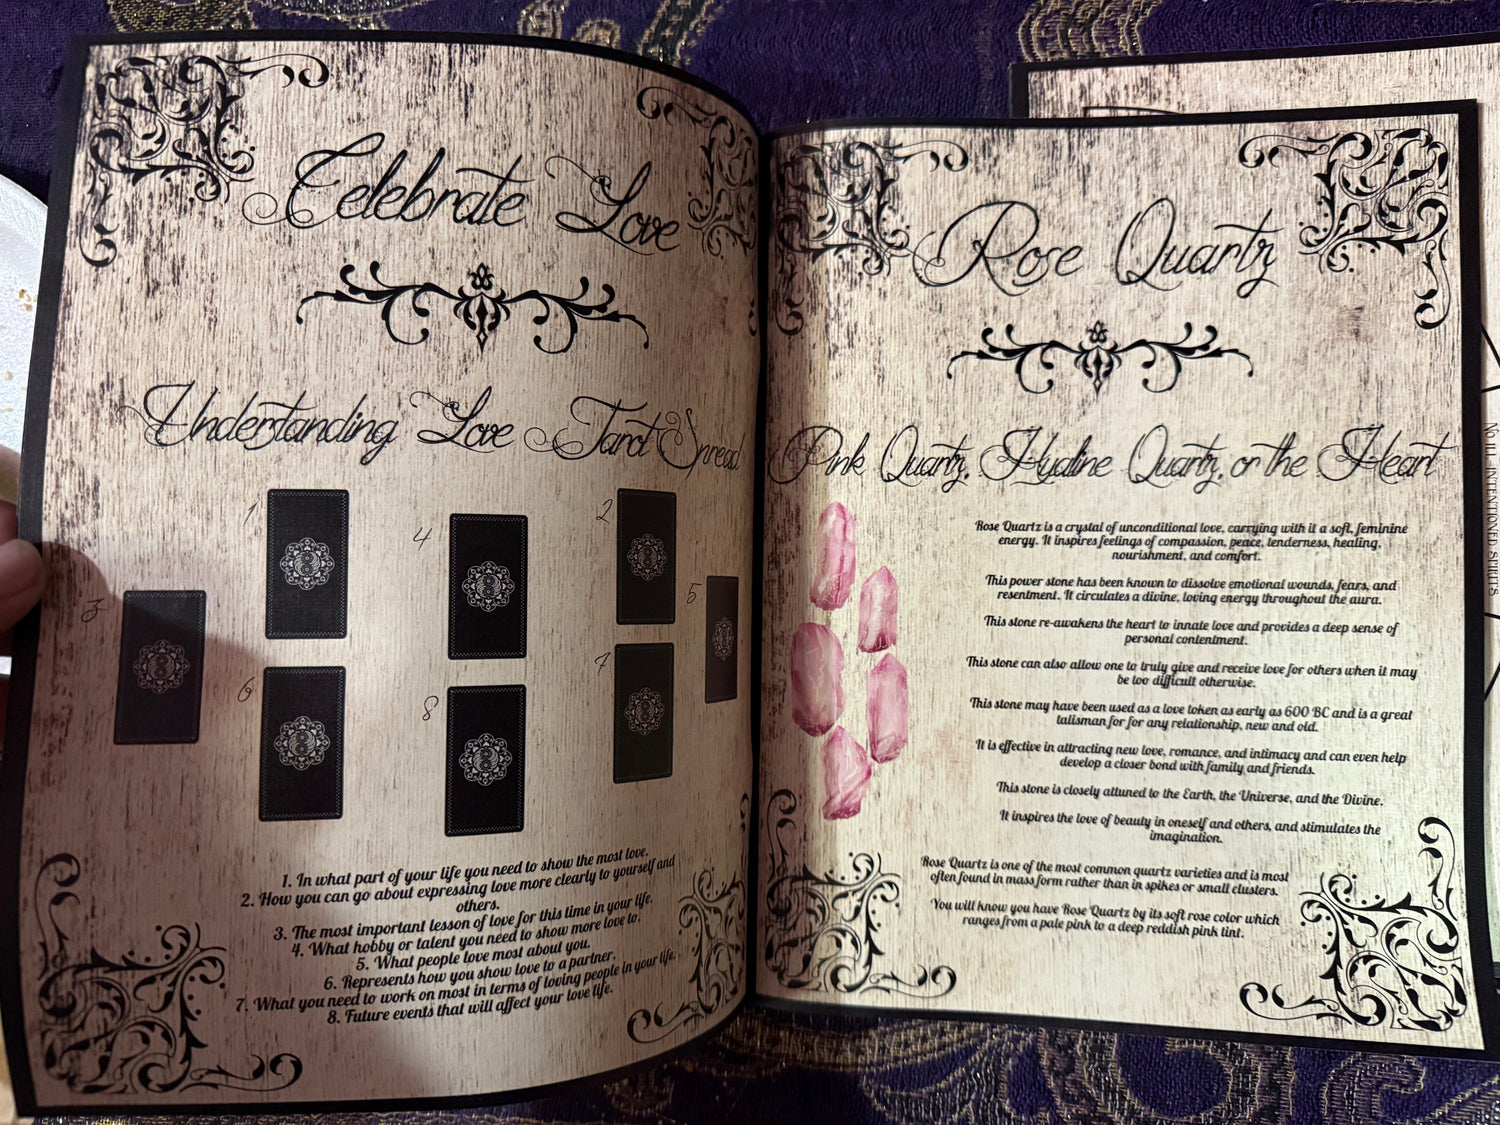 Celebrate Love
Understanding Love Tarot Spread
1
2
3
4
5
6
7
8
1. In what part of your life you need to show the most love.
2. How you can go about expressing love more clearly to yourself and
others.
3. The most important lesson of love for this time in your life.
4. What hobby or talent you need to show more love to.
5. What people love most about you.
6. Represents how you show love to a partner.
7. What you need to work on most in terms of loving people in your life.
8. Future events that will affect your love life.
Rose Quartz
Pink Quartz, Hyaline Quartz, or the Heart
Rose Quartz is a crystal of unconditional love, carrying with it a soft, feminine
energy. It inspires feelings of compassion, peace, tenderness, healing,
nourishment, and comfort.
This power stone has been known to dissolve emotional wounds, fears, and
resentment. It circulates a divine, loving energy throughout the aura.
This stone re-awakens the heart to innate love and provides a deep sense of
personal contentment.
This stone can also allow one to truly give and receive love for others when it may
be too difficult otherwise.
This stone may have been used as a love token as early as 600 BC and is a great
talisman for for any relationship, new and old.
It is effective in attracting new love, romance, and intimacy and can even help
develop a closer bond with family and friends.
This stone is closely attuned to the Earth, the Universe, and the Divine.
It inspires the love of beauty in oneself and others, and stimulates the
imagination.
Rose Quartz is one of the most common quartz varieties and is most
often found in mass form rather than in spikes or small clusters.
You will know you have Rose Quartz by its soft rose color which
ranges from a pale pink to a deep reddish pink tint.
No ill intentioned spirits